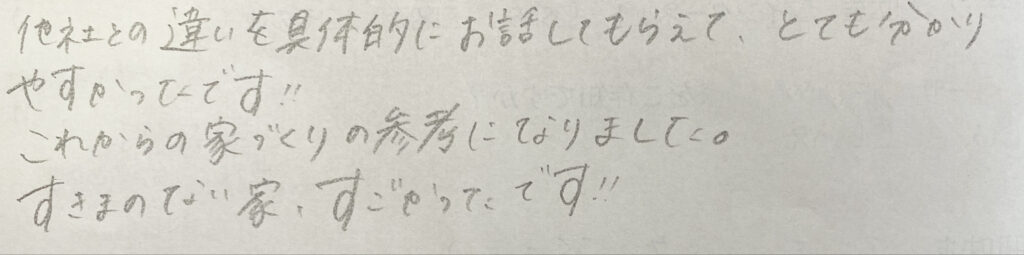 他社との違いを具体的にお話してもらえて、とても分かり
やすかったです!!
これからの家づくりの参考になりました。
すきまのない家、すごかったです!!